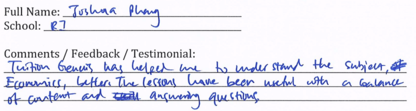 Full Name: Joshua Phang
School: RJ
Comments / Feedback / Testimonial:
Tuition Genius has helped me to understand the subject,
Economics, better. The lessons have been useful with a balance
of content and answering questions.